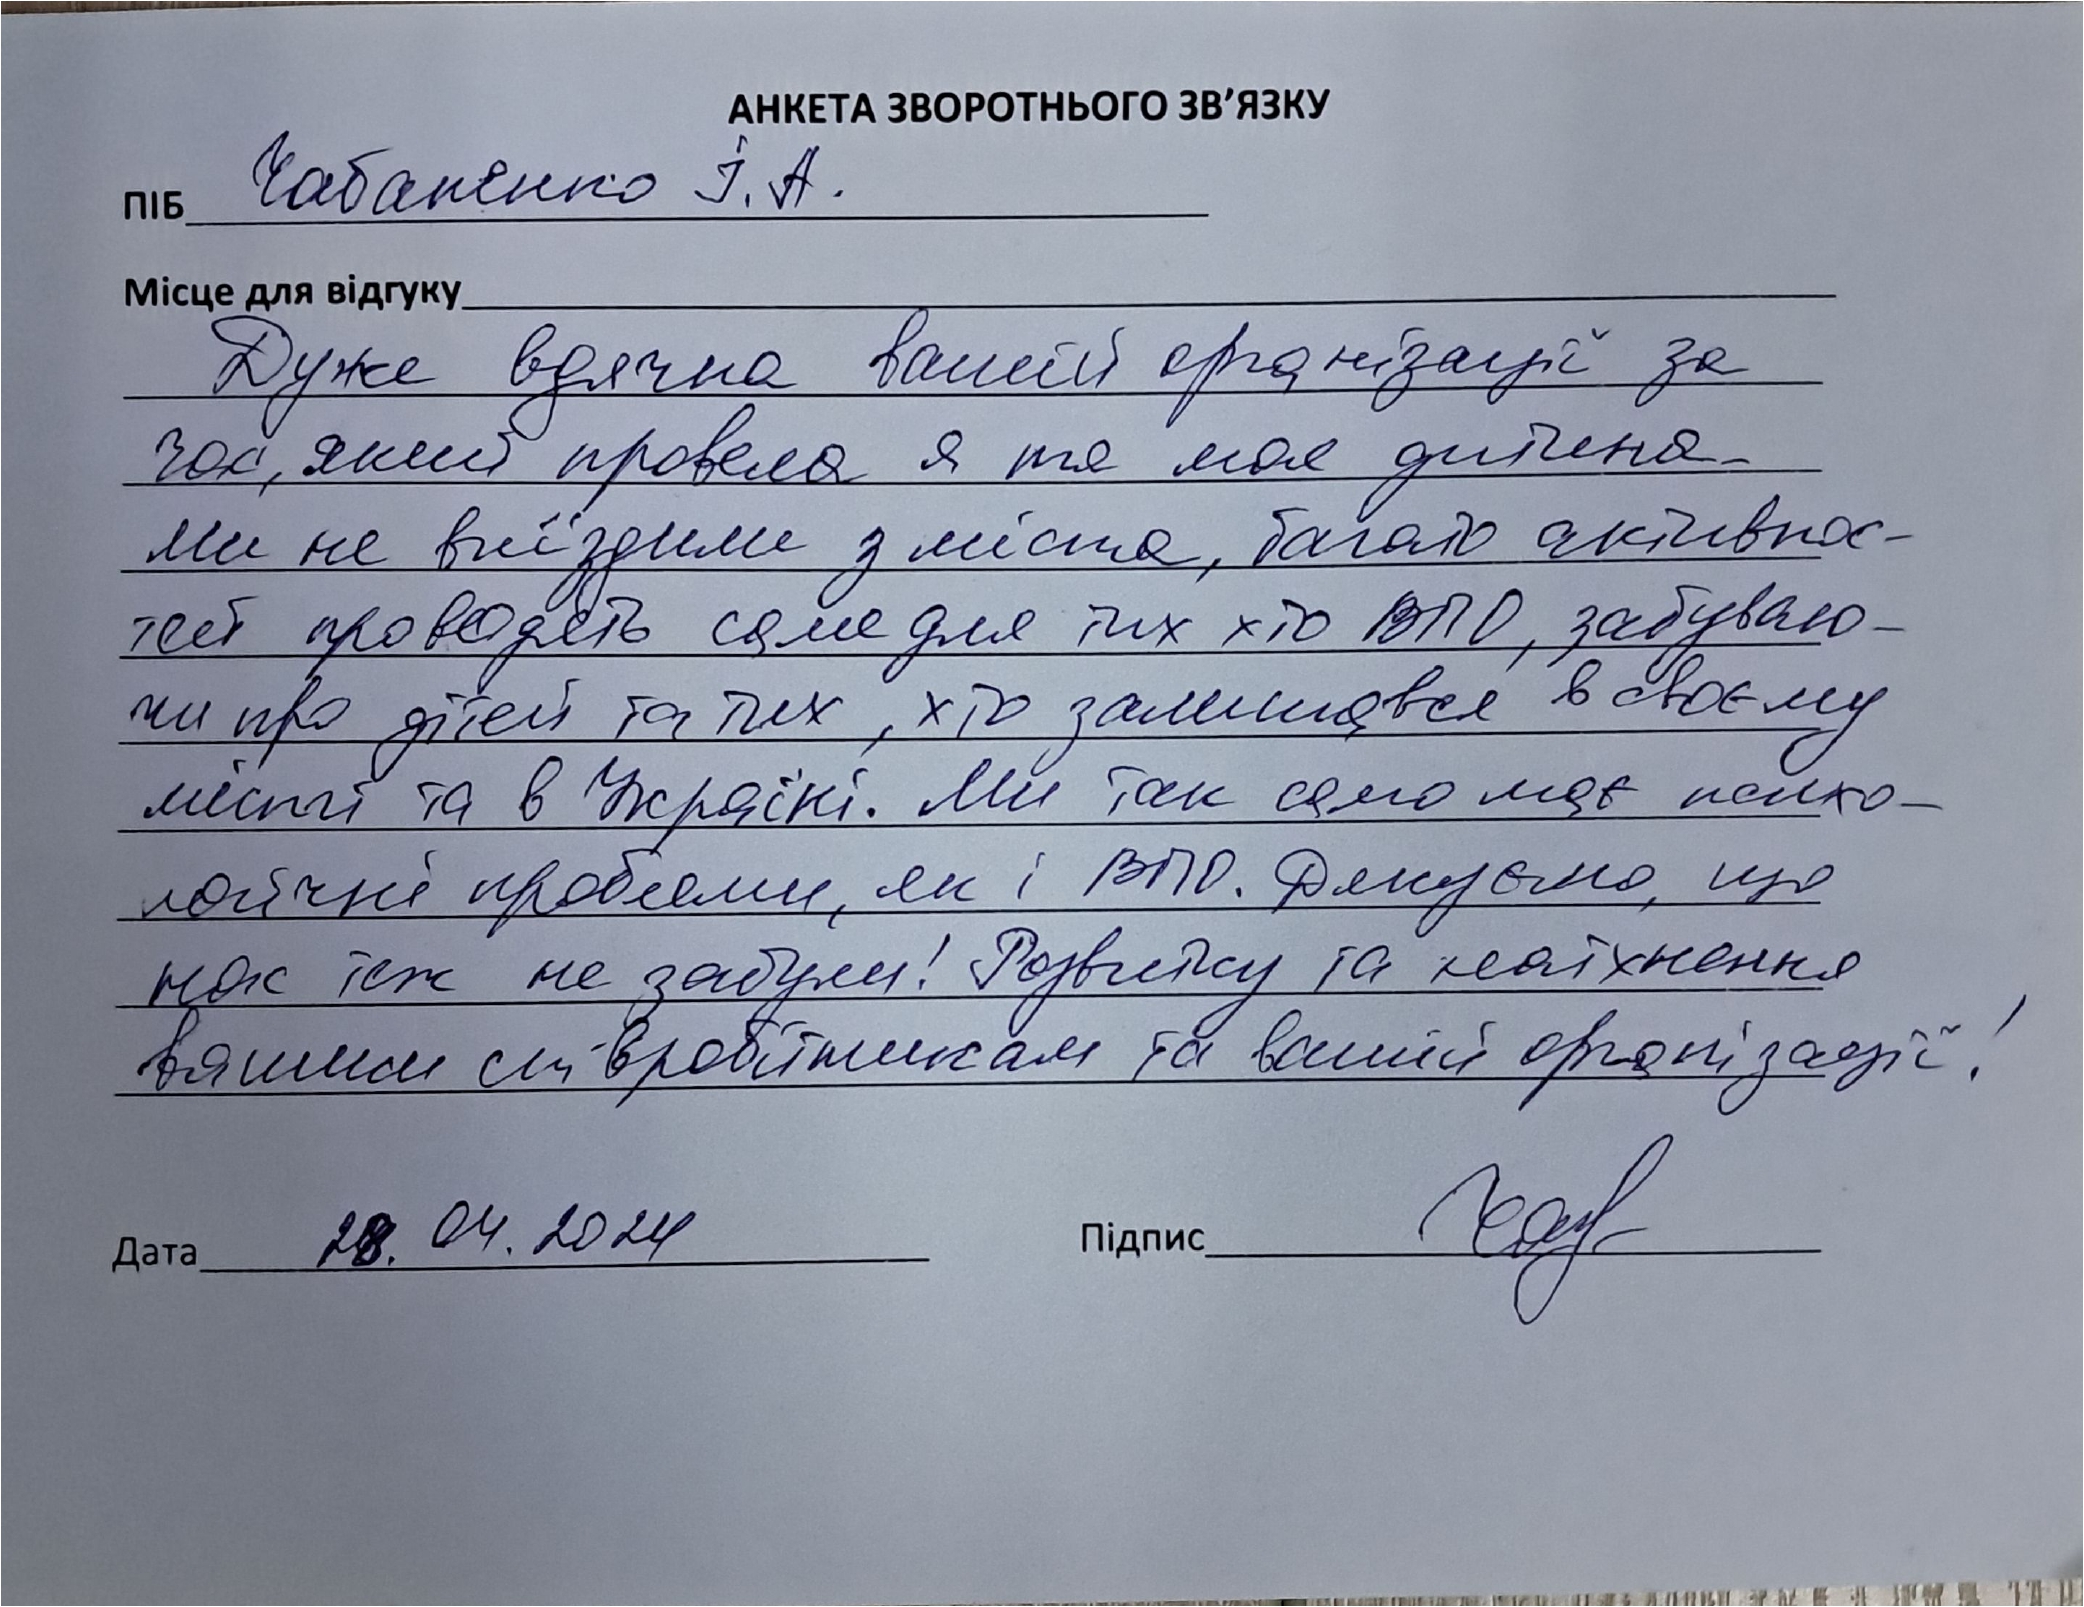 АНКЕТА ЗВОРОТНЬОГО ЗВ'ЯЗКУ
ПІБ Чабаненко І. А.
Місце для відгуку
Дуже вдячна вашій організації за
час, який провела я та моя дитина.
Ми не виїздили з міста, багато активнос-
тей проводять саме для тих хто ВПО, забуваю-
чи про дітей та тих, хто залишався в своєму
місті та в Україні. Ми так само має психо-
логічні проблеми, як і ВПО. Дякуємо, що
нас теж не забули! Розвитку та натхнення
вашим співробітникам та вашій організації!
Дата 28.04.2024 Підпис